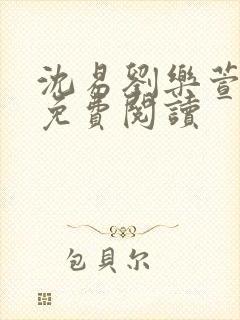 沈易劉樂萱
免費閱讀
包貝尔